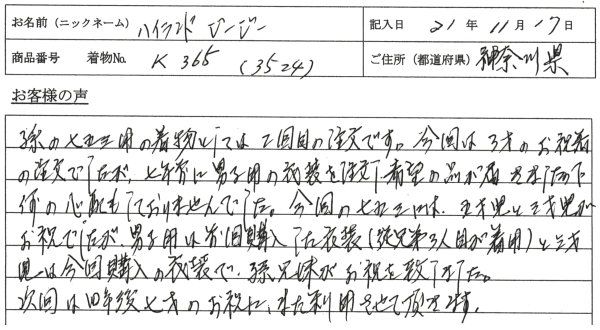 お名前（ニックネーム） ハイランド ビージー 記入日 21年 11月 17日
商品番号 着物No. K 365 (3524) ご住所（都道府県） 神奈川県
お客様の声
孫の七五三用の着物としては2回目の注文です。今回は3才のお祝着
の注文でしたが、七年前に男子用の衣装を注文し希望の品が届きましたので
何の心配もしておりませんでした。今回の七五三には、五才児と三才児が
お祝でしたが、男子用は前回購入した衣装(従兄弟3人目が着用)と三才
児は今回購入の衣装で、孫兄妹がお祝を致しました。
次回は四年後七才のお祝に、また利用させて頂きます。